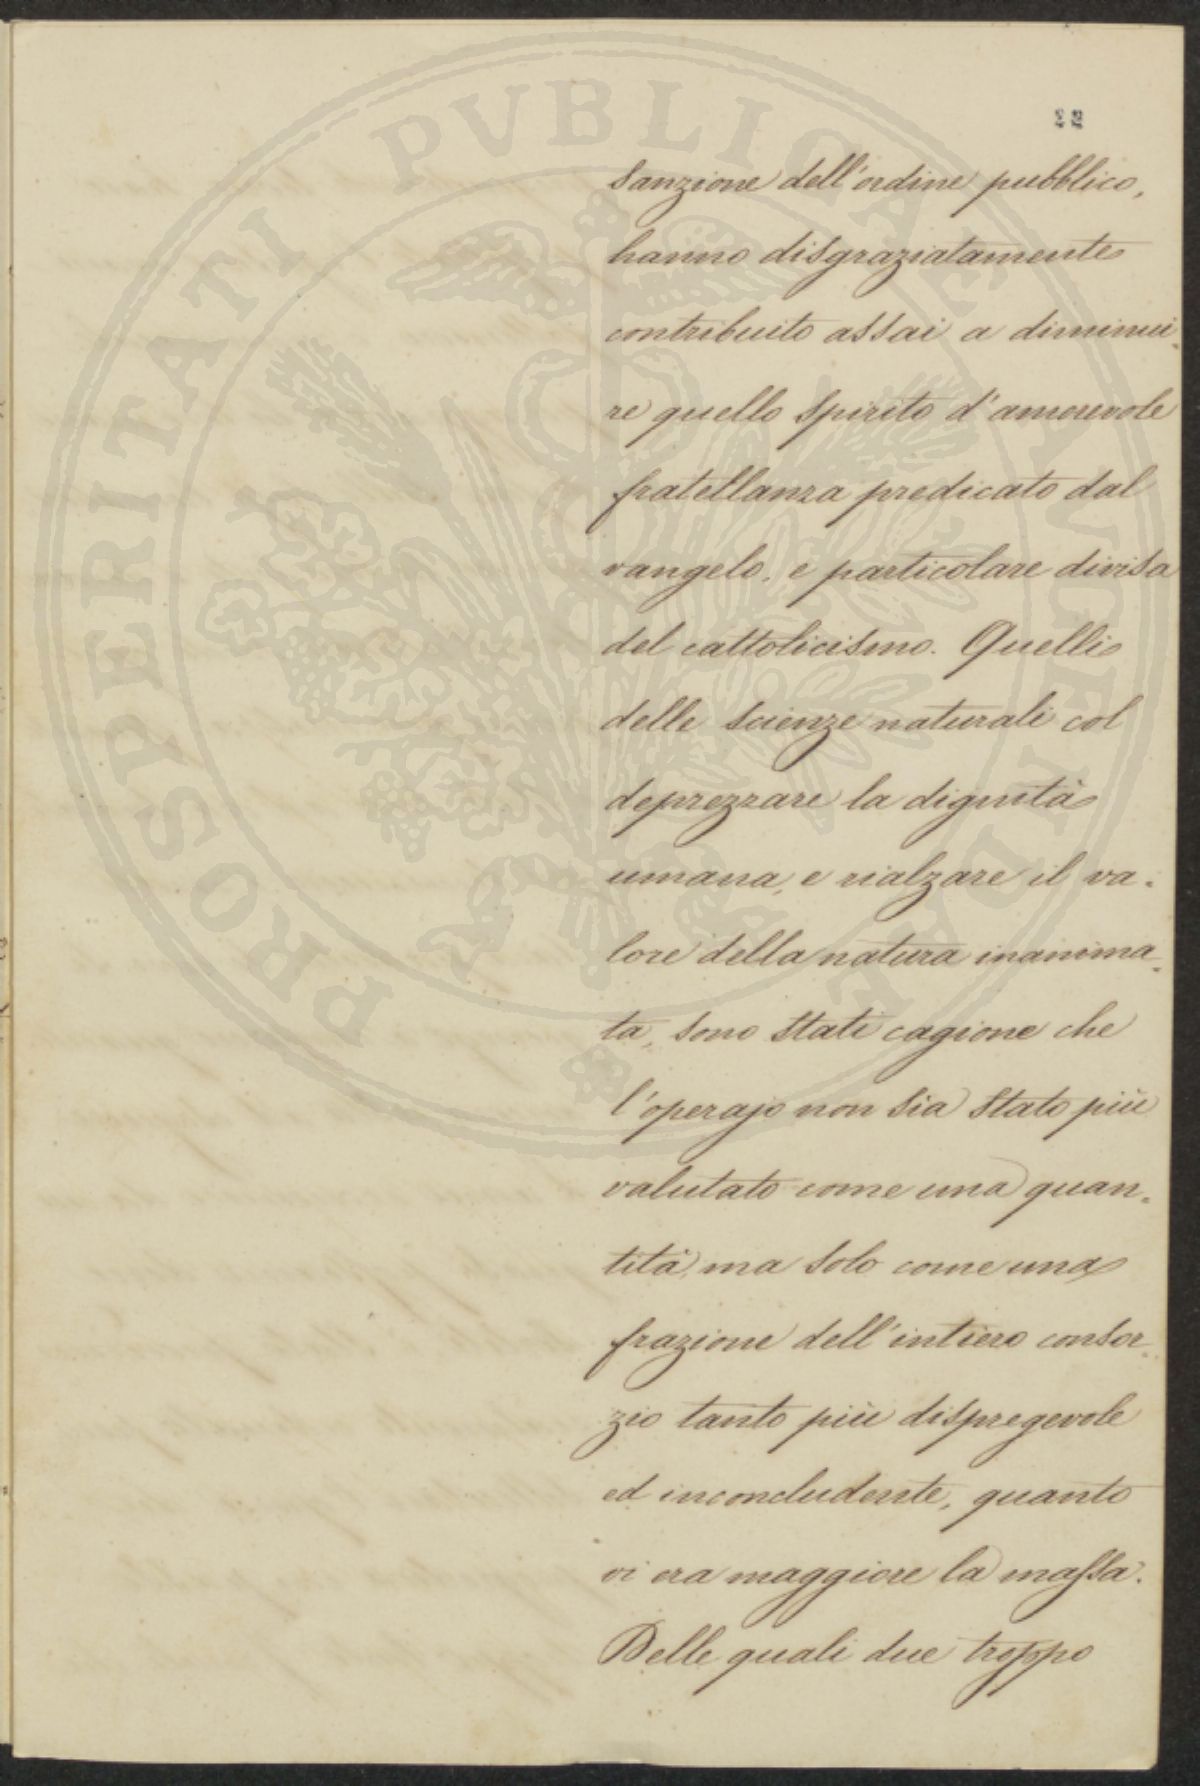 22
PROSPERITATI PVBLICAE AVGENDAE
sanzione dell'ordine pubblico,
hanno disgraziatamente
contribuito assai a diminui-
re quello spirito d'amorevole
fratellanza predicato dal
vangelo, e particolare divisa
del cattolicismo. Quelli
delle scienze naturali col
deprezzare la dignità
umana, e rialzare il va-
lore della natura inanima-
ta, sono stati cagione che
l'operajo non sia stato più
valutato come una quan-
tità, ma solo come una
frazione dell'intiero consor-
zio tanto più dispregevole
ed inconcludente, quanto
vi era maggiore la massa.
Delle quali due troppo